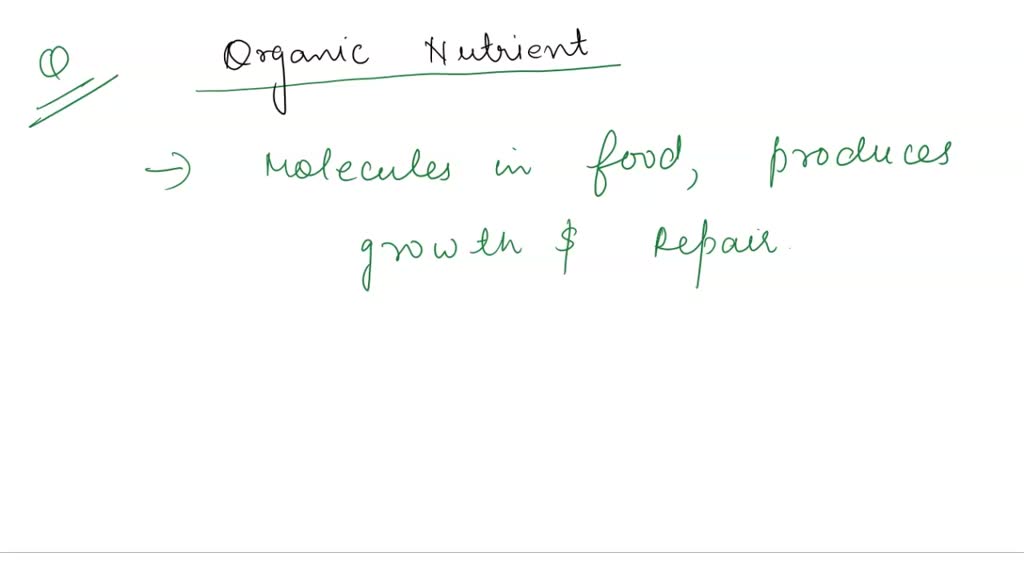 Q Organic Nutrient
→ Molecules in food, produces
growth & Repair.